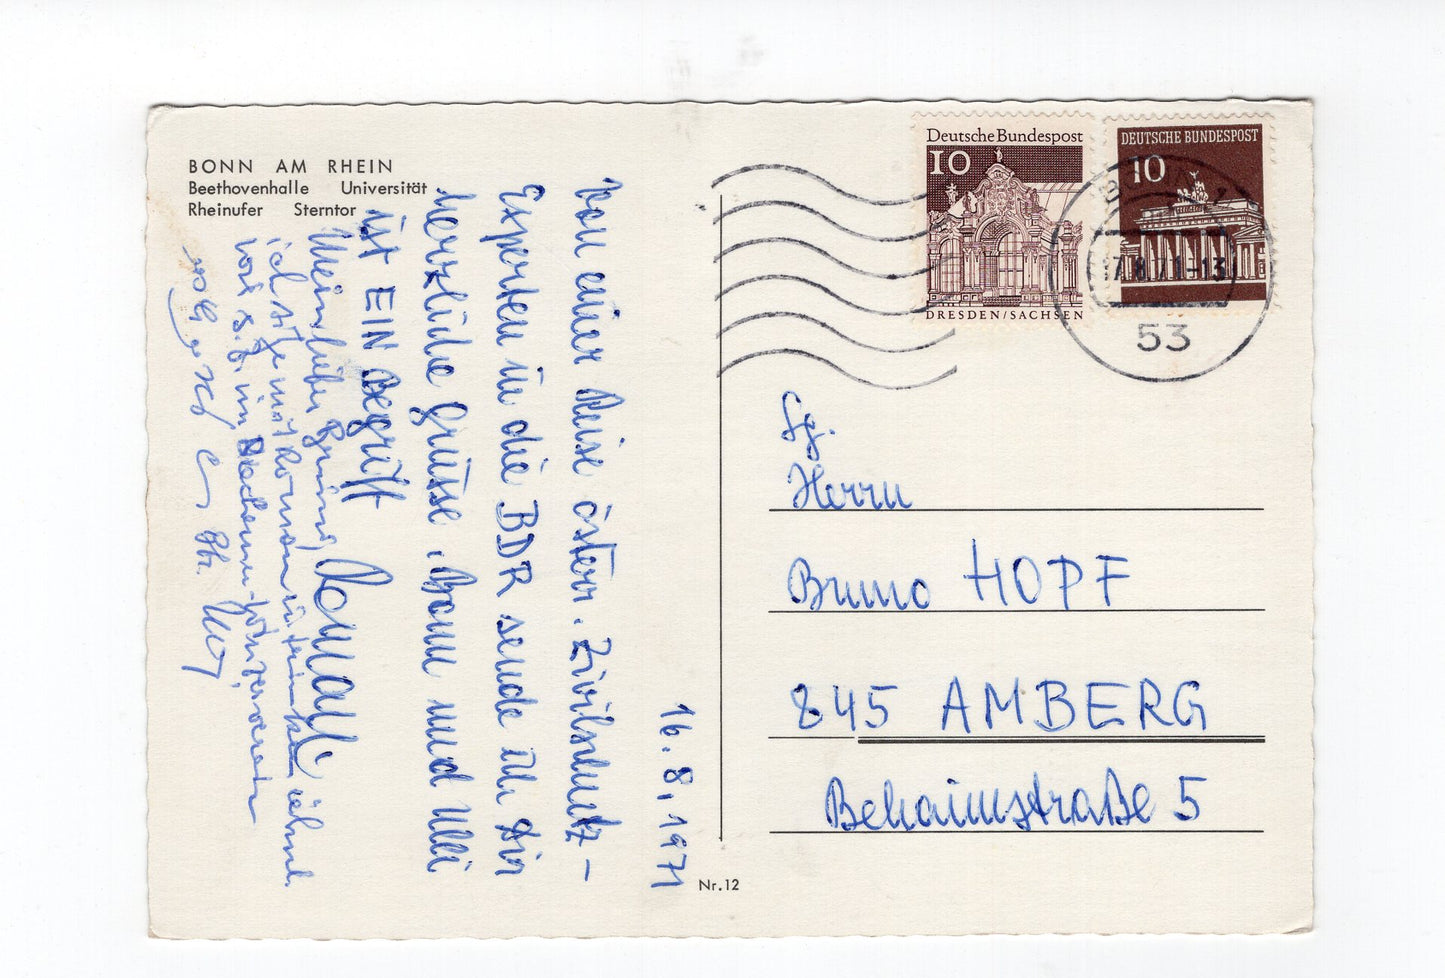 BONN AM RHEIN
Beethovenhalle Universität
Rheinufer Sterntor
Deutsche Bundespost
10
DRESDEN/SACHSEN
DEUTSCHE BUNDESPOST
10
17.8.71-13
53
16.8.1971
Von einer Reise österr. Zivilschutz-
Experten in die BDR sende ich Dir
herzliche Grüsse. Bonn und Ulli
ist EIN Begriff
Mein lieber Bruno,
ich sitze mit Roman u. trinke
Sg.
Herrn
Bruno HOPF
845 AMBERG
Behaimstraße 5
Nr.12